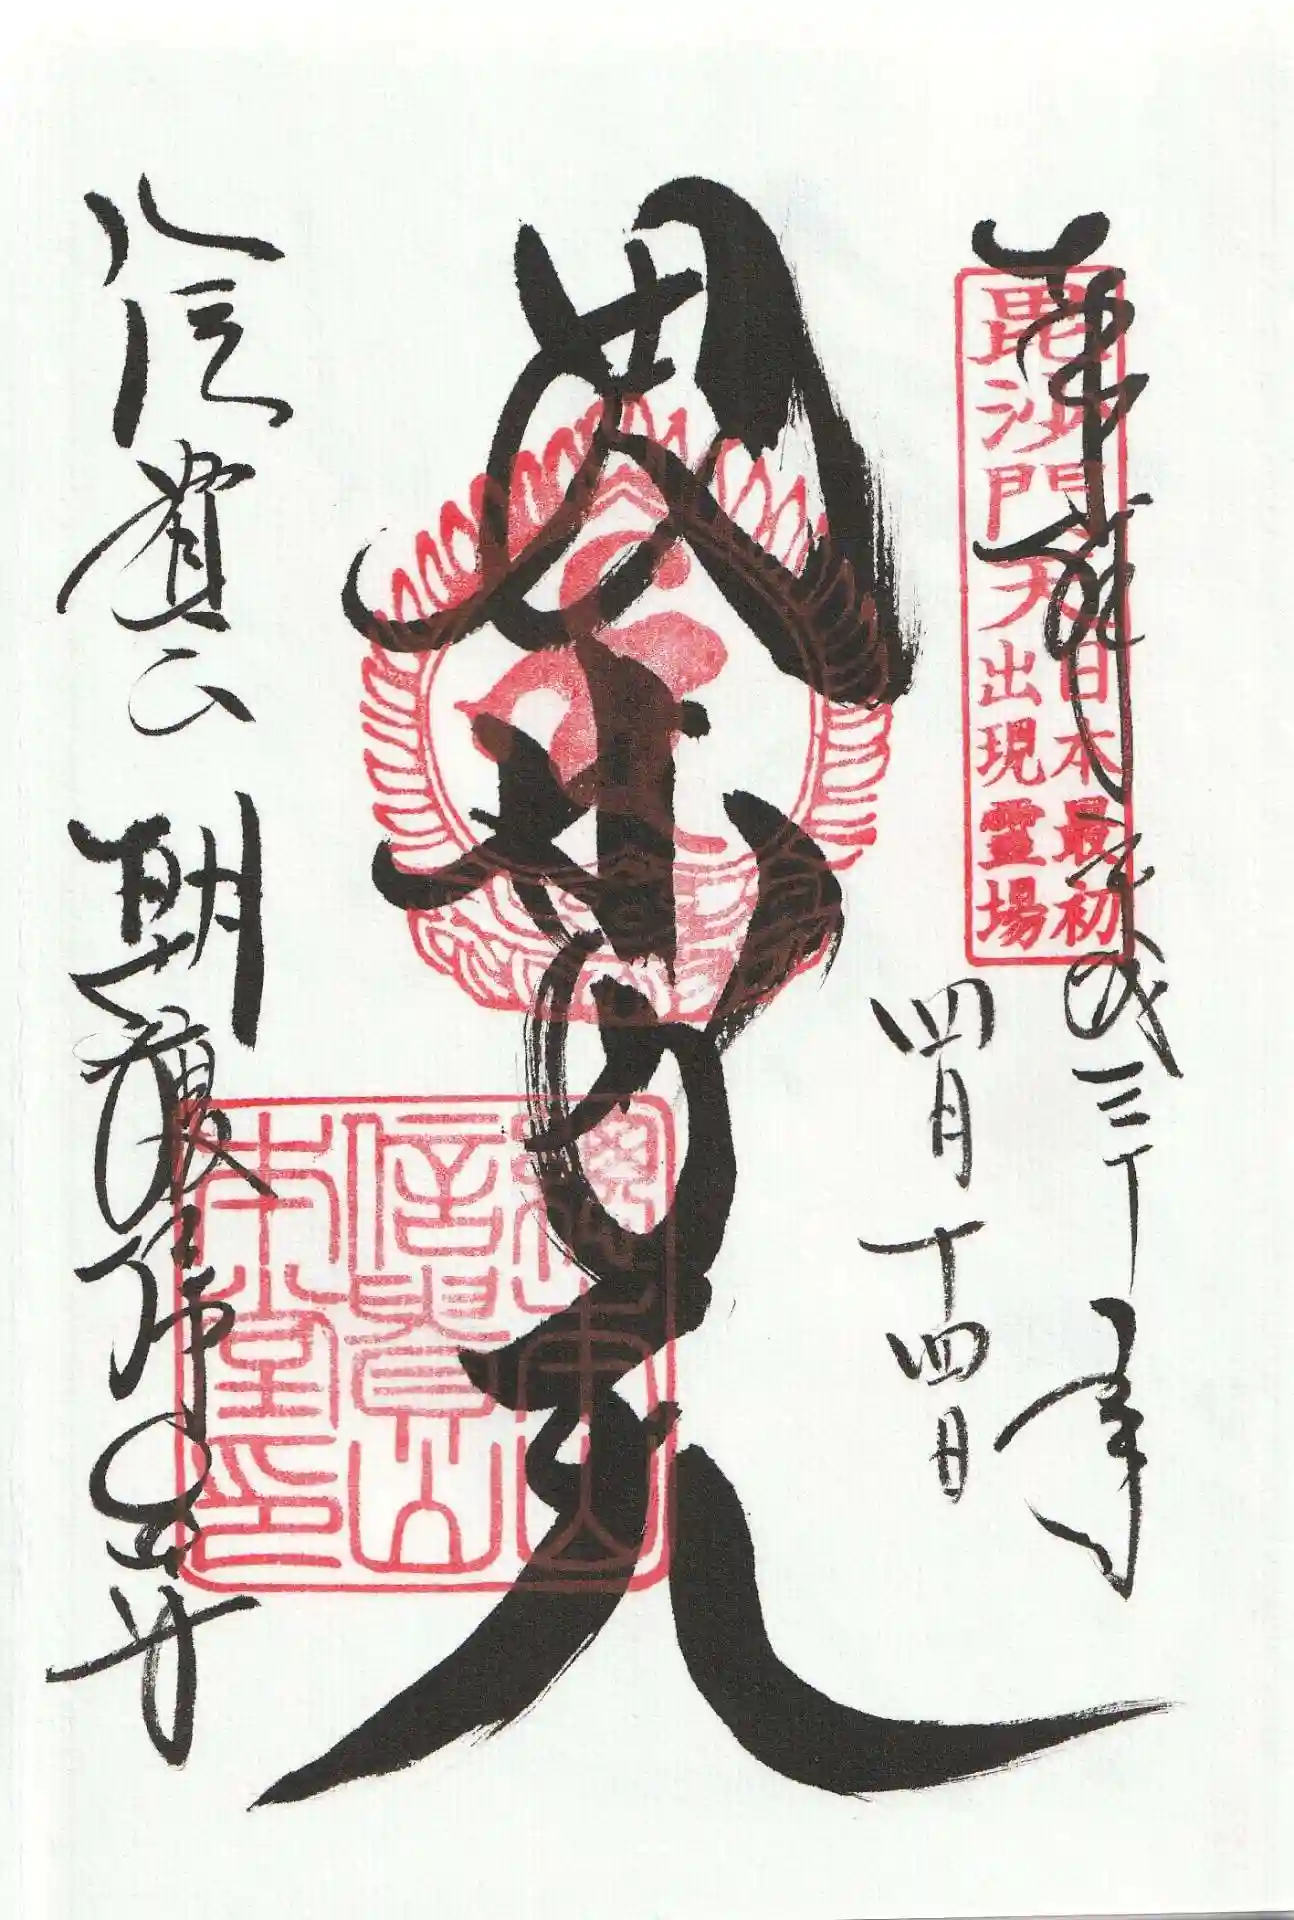 奉拝
平成三十年
四月十四日
毘沙門天
日本最初
出現霊場
毘沙門天
総本山
信貴山
本堂印
信貴山
朝護孫子寺